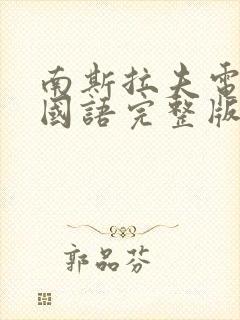 南斯拉夫電
國語完整版
郭品芬